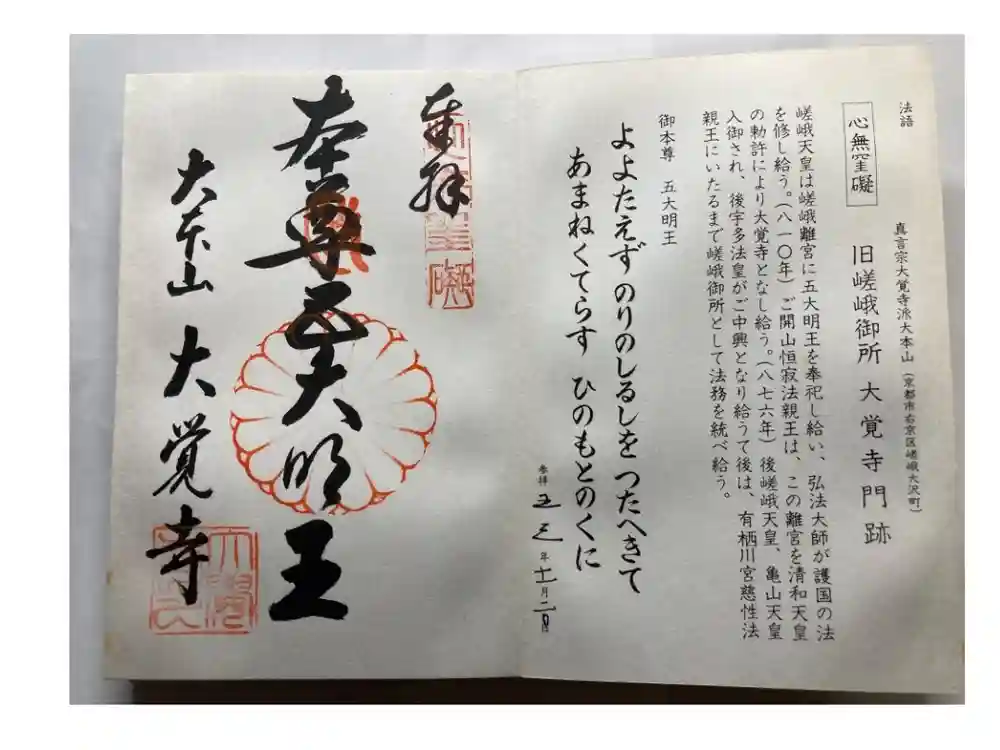 法語
心無罣礙
真言宗大覚寺派大本山(京都市右京区嵯峨大沢町)
旧嵯峨御所 大覚寺門跡
嵯峨天皇は嵯峨離宮に五大明王を奉祀し給い、弘法大師が護国の法
を修し給う。(八一〇年)ご開山恒寂法親王は、この離宮を清和天皇
の勅許により大覚寺となし給う。(八七六年)後嵯峨天皇、亀山天皇
入御され、後宇多法皇がご中興となり給うて後は、有栖川宮慈性法
親王にいたるまで嵯峨御所として法務を統べ給う。
御本尊 五大明王
よよたえず のりのしるしを つたへきて
あまねくてらす ひのもとのくに
参拝 五三年十一月二日
奉拝
本尊五大明王
大本山 大覚寺